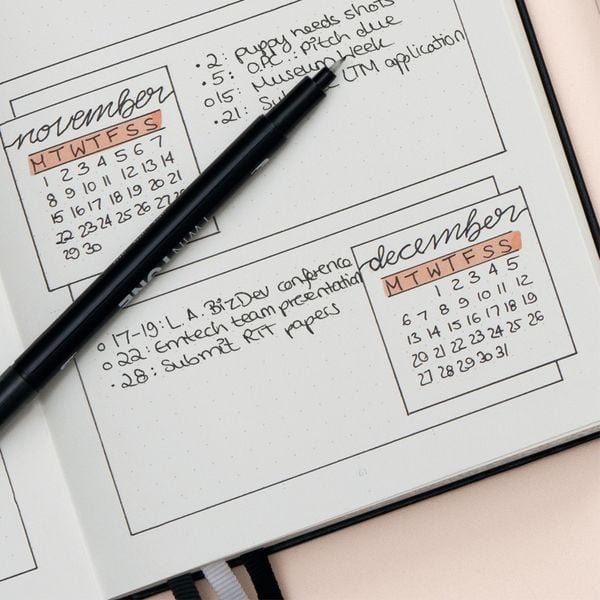 • 2: puppy needs shots
• 5: O.P.C.: pitch due
o 15: Museum Week
• 21: LTM application
november
M T W T F S S
1 2 3 4 5 6 7
8 9 10 11 12 13 14
15 16 17 18 19 20 21
22 23 24 25 26 27
29 30
TWINTONE
o 17-19: L.A. BizDev conference
o 22: Emtech team presentation
• 28: Submit RTT papers
december
M T W T F S S
1 2 3 4 5
6 7 8 9 10 11 12
13 14 15 16 17 18 19
20 21 22 23 24 25 26
27 28 29 30 31
61